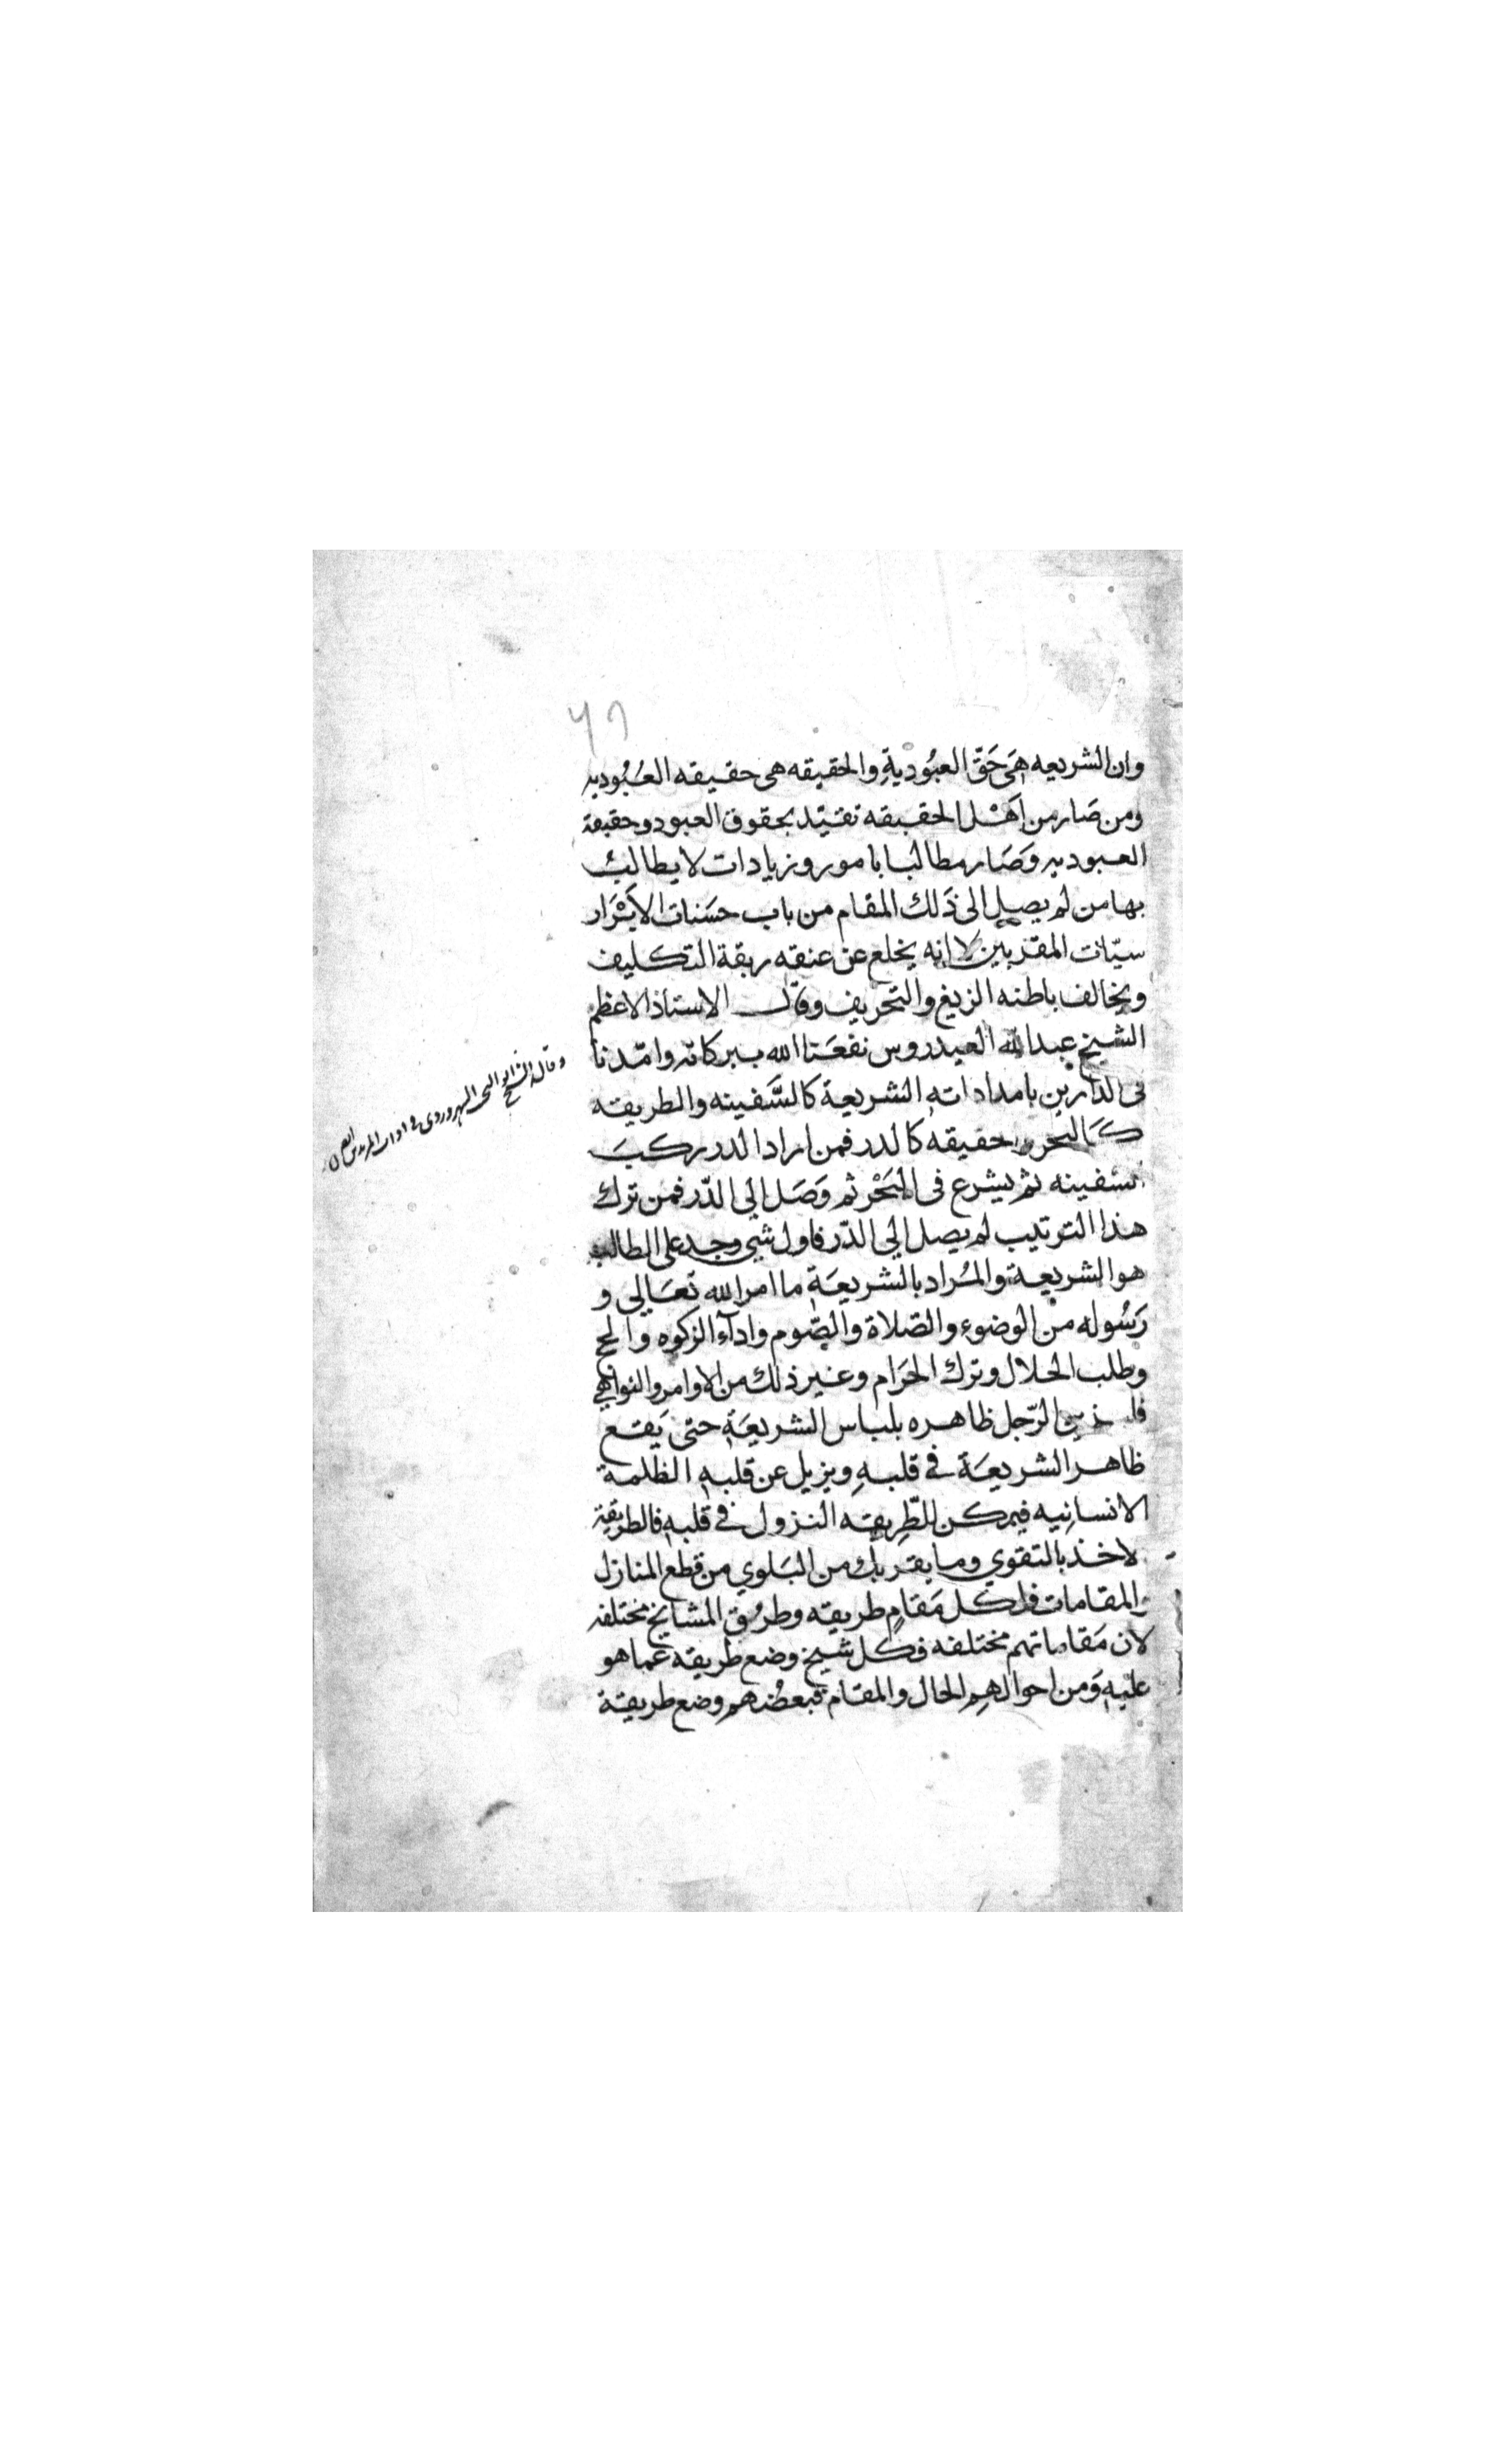 ٦٩
وان الشريعه هَي حَقّ العبُوديةِ والحقيقه هى حقيقه العبُوديه
ومن صَار من اَهْل الحقيقه تقيّد بحقوق العبود وحقيقة
العبوديه وَصَار مطالبا بامور وزيادات لا يطالب
بها من لم يصل الى ذَلك المقام من باب حسَنات الاَبْرَار
سيّات المقرّبين لا انه يخلع عن عنقه ربقة التكليف
ويخالف باطنه الزيغ والتحريف وقال الاستاذ الاعظم
الشيخ عبد الله العيدروس نفعَنا الله ببركاته وامّدنا
فى الدارين بامداداته الشريعة كالسَّفينه والطريقه
كَالبحر والحقيقه كالدر فمن اراد الدر ركبَ
السفينه ثم يشرع فى البَحْر ثم وَصَل الي الدّر فمن ترك
هذا الترتيب لم يصل الي الدّر فاول شي وجد على الطالب
هو الشريعة والمُراد بالشريعَة ما امر الله تعَالي و
رَسُوله من الوضوء والصّلاة والصّوم واداء الزكوه والحج
وطلب الحلال وترك الحَرَام وغير ذلك من الاوامر والنواهي
الرّجل ظاهره بلباس الشريعَة حتى يَقع
ظاهر الشريعَة في قلبهِ ويزيل عن قلبه الظلمة
الانسانيه فيمكن للطّريقه النزول في قلبه فالطريقة
الاخذ بالتقوي وما يقربك من البَلوي من قطع المنازل
والمقامات فلكل مَقامٍ طريقه وطرُق المشايخ مختلفه
لان مَقاماتهم مختلفه فكل شيخ وضع طريقه عما هو
عليه وَمن احوالهم الحال والمقام فبعضُهم وضع طريقة
وقاله الشيخ ابو النجيب السهروردى فى اداب المريدين